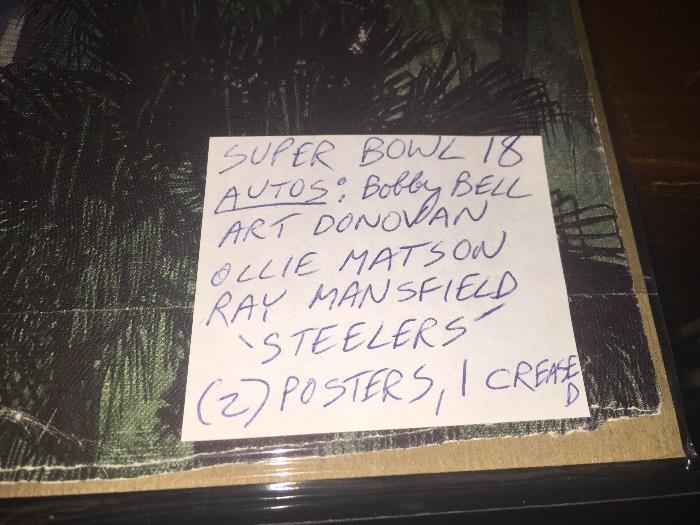 SUPER BOWL 18
AUTOS: Bobby BELL
ART DONOVAN
OLLIE MATSON
RAY MANSFIELD
'STEELERS'
(2) POSTERS, 1 CREASED